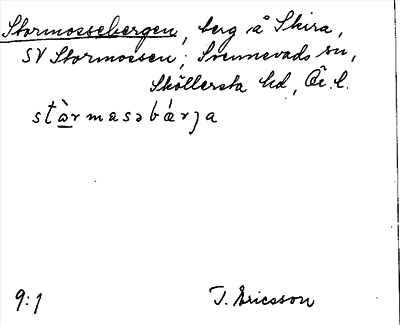 Stormossebergen, berg å Skira,
SV Stormossen; Svennevads sn,
Sköllersta hd, Ör. l.
stàrmasəbǽrȷa
9:1 T. Ericsson